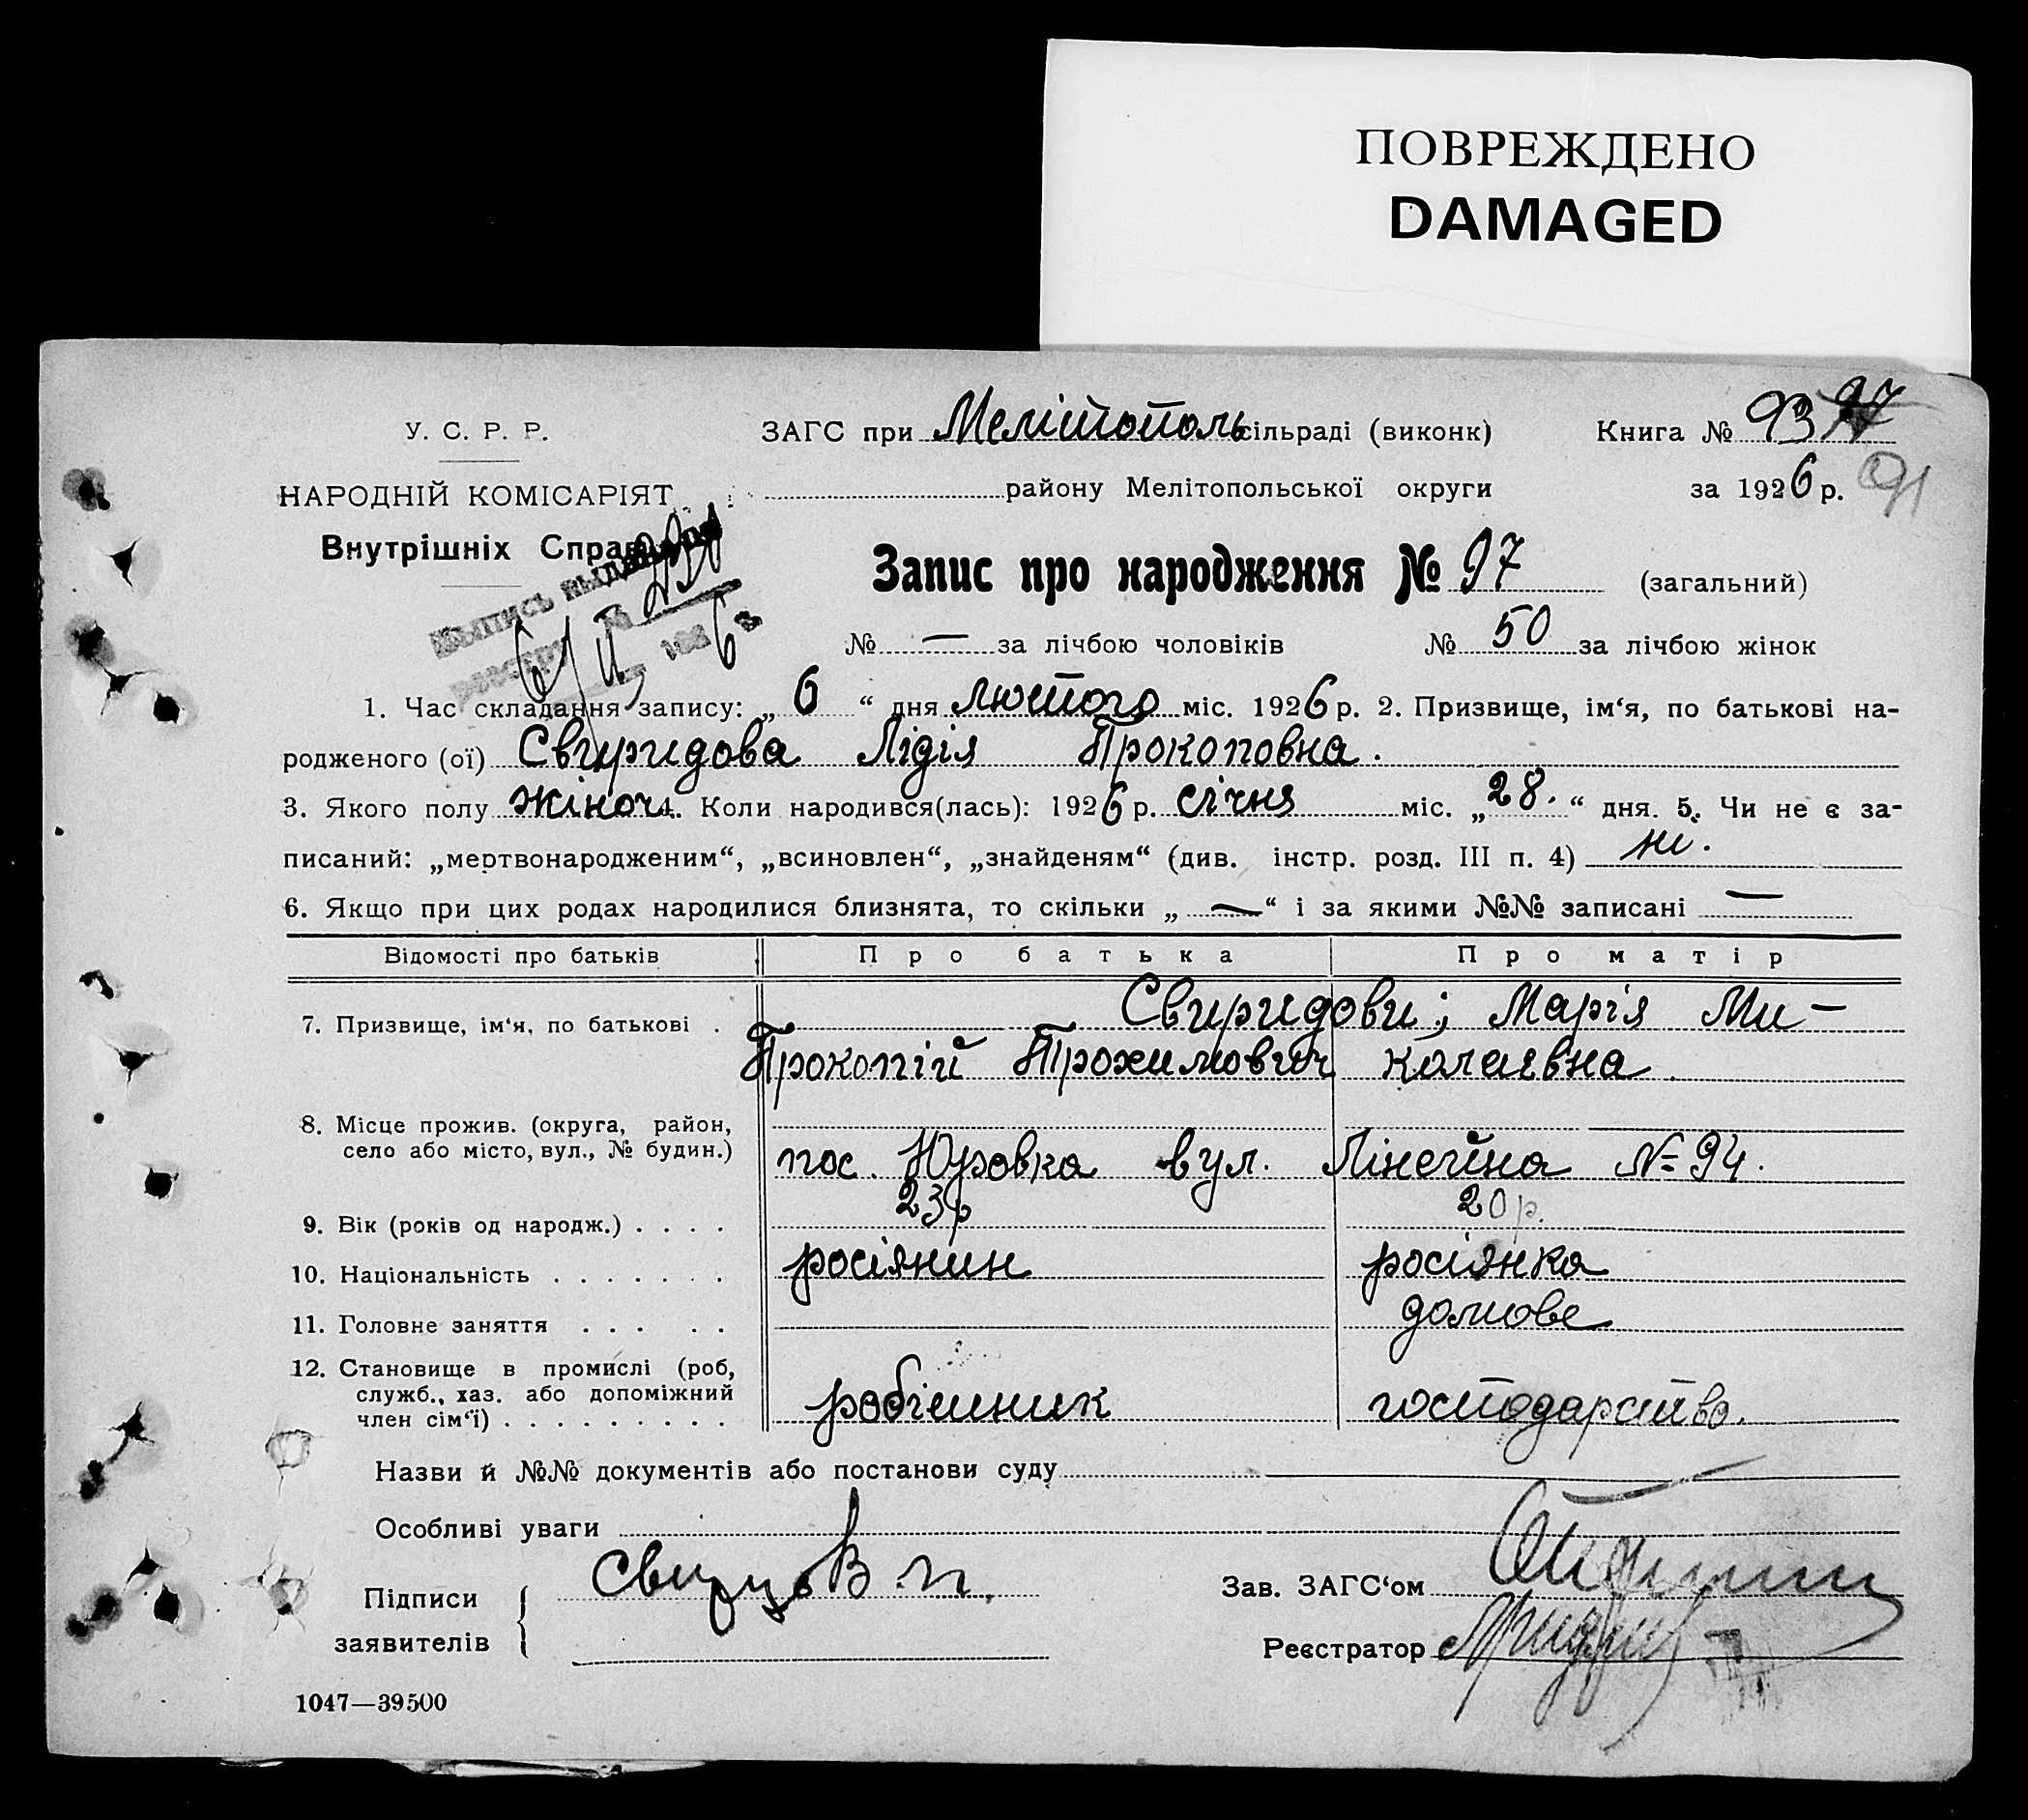 ПОВРЕЖДЕНО
DAMAGED
У. С. Р. Р.
НАРОДНІЙ КОМІСАРІЯТ
Внутрішніх Справ
ЗАГС при Мелітополь сільраді (виконк)
Книга № 93 97
району Мелітопольської округи
за 1926 р. 91
Запис про народження № 97 (загальний)
Выпись выдана
реестру № 6/II 1926 г.
№ — за лічбою чоловіків № 50 за лічбою жінок
1. Час складання запису: „ 6 “ дня лютого міс. 1926 р. 2. Призвище, ім‘я, по батькові на-
родженого (ої) Свиридова Лідія Прокоповна.
3. Якого полу жіноч. 4. Коли народився(лась): 1926 р. січня міс. „ 28. “ дня. 5. Чи не є за-
писаний: „мертвонародженим“, „всиновлен“, „знайденям“ (див. інстр. розд. III п. 4) ні.
6. Якщо при цих родах народилися близнята, то скільки „ — “ і за якими №№ записані —
Відомості про батьків Про батька Про матір
7. Призвище, ім‘я, по батькові . Свиридови; Марія Ми-
Прокопій Трохимович колаєвна
8. Місце прожив. (округа, район,
село або місто, вул., № будин.) пос. Юровка вул. Лінейна № 94.
9. Вік (років од народж.) . . . . 23 р 20 р.
10. Національність . . . . . . . росіянин росіянка
11. Головне заняття . . . . . домове
12. Становище в промислі (роб,
служб., хаз. або допоміжний
член сім‘ї) . . . . . . . . . робітник господарство.
Назви й №№ документів або постанови суду
Особливі уваги
Підписи
заявителів
Зав. ЗАГС‘ом
Реєстратор
1047—39500